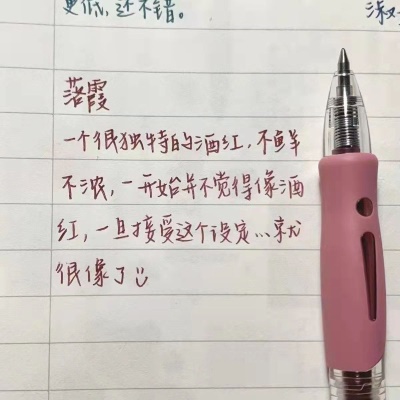 更低，还不错。
落霞
一个很独特的酒红，不鲜
不浓，一开始并不觉得像酒
红，一旦接受这个设定...就
很像了